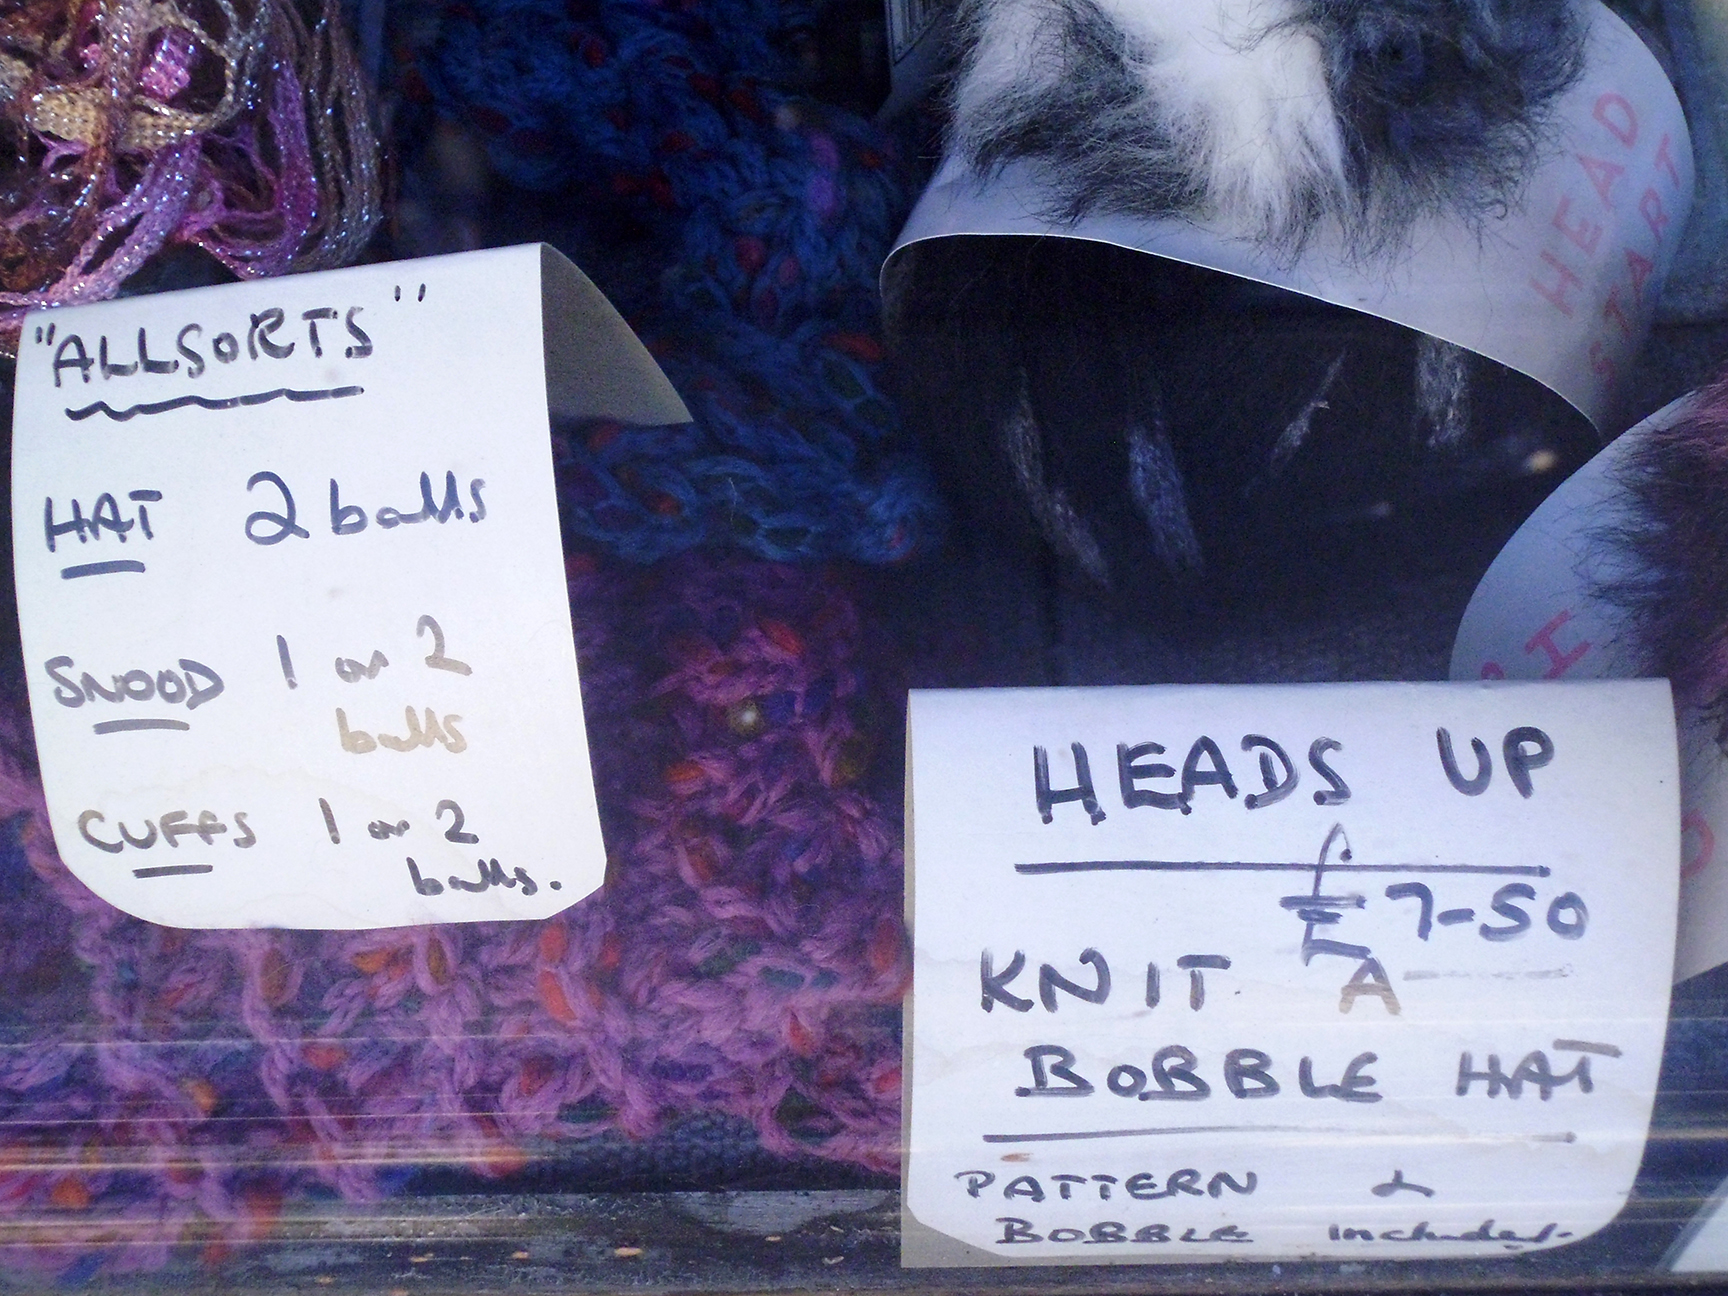 "ALLSORTS"
HAT 2 balls
SNOOD 1 or 2
balls
CUFFS 1 or 2
balls.
HEAD
START
HEADS UP
£7-50
KNIT A
BOBBLE HAT
PATTERN &
BOBBLE included.